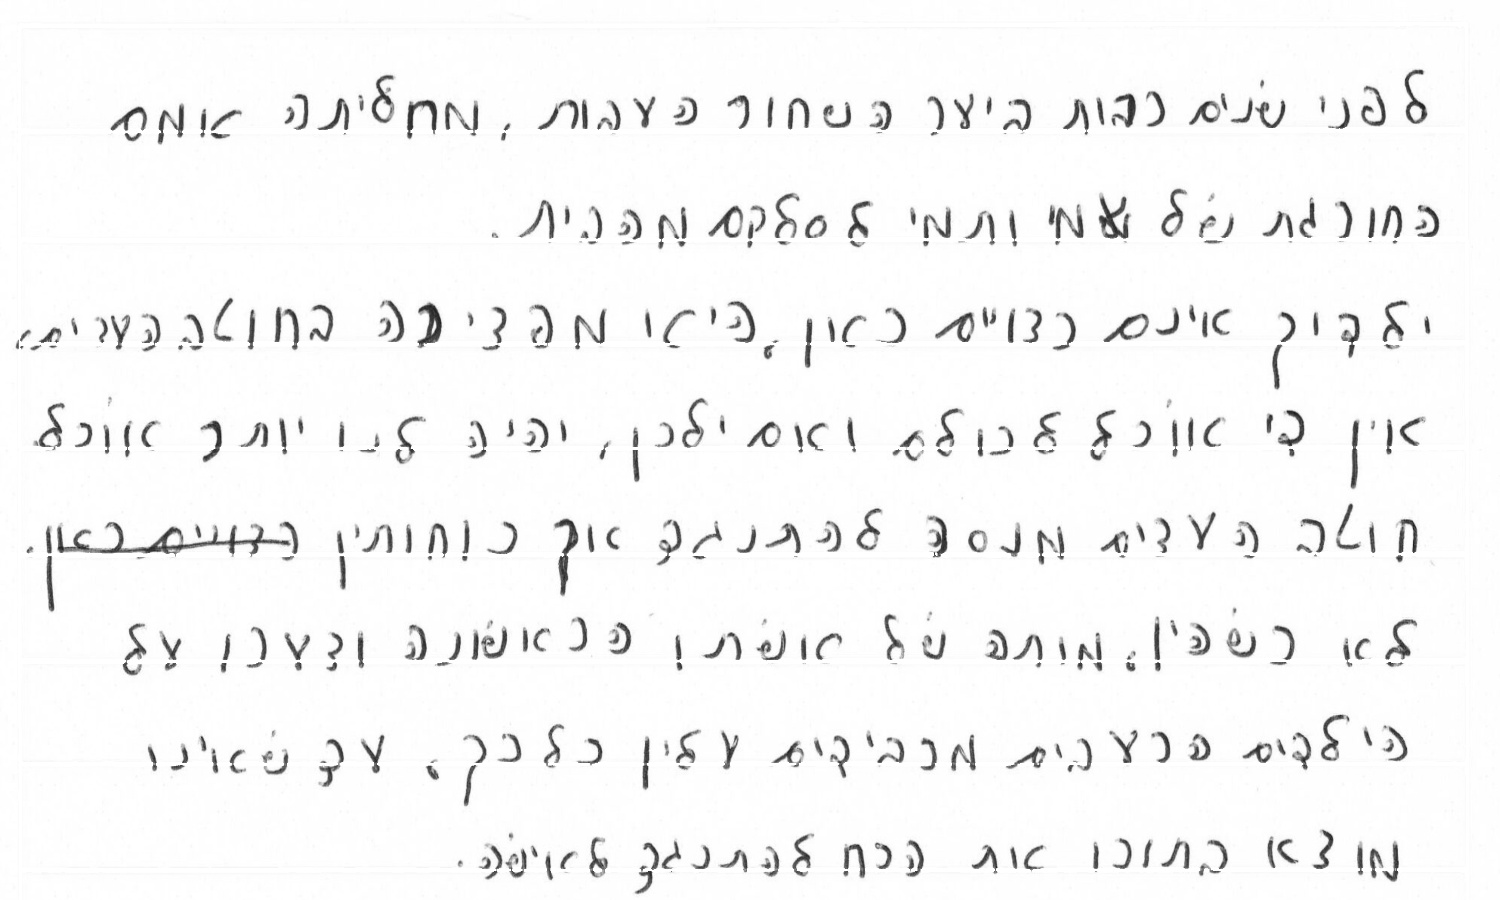 לפני שנים רבות ביער השחור העבות, מחליתה אומם
החורגת של עמי ותמי לסלקם מהבית.
ילדיך אינם רצויים כאן, היא מפצירה בחוטב העצים,
אין די אוכל לכולם ואם ילכו, יהיה לנו יותר אוכל
חוטב העצים מנסה להתנגד אך כוחותיו רצויים כאן.
לא כשהין. מותה של אושתו הראשונה וצערו על
הילדים הרעבים מכבידים עליו כל כך, עד שאינו
מוצא בתוכו את הכח להתנגד לאישה.